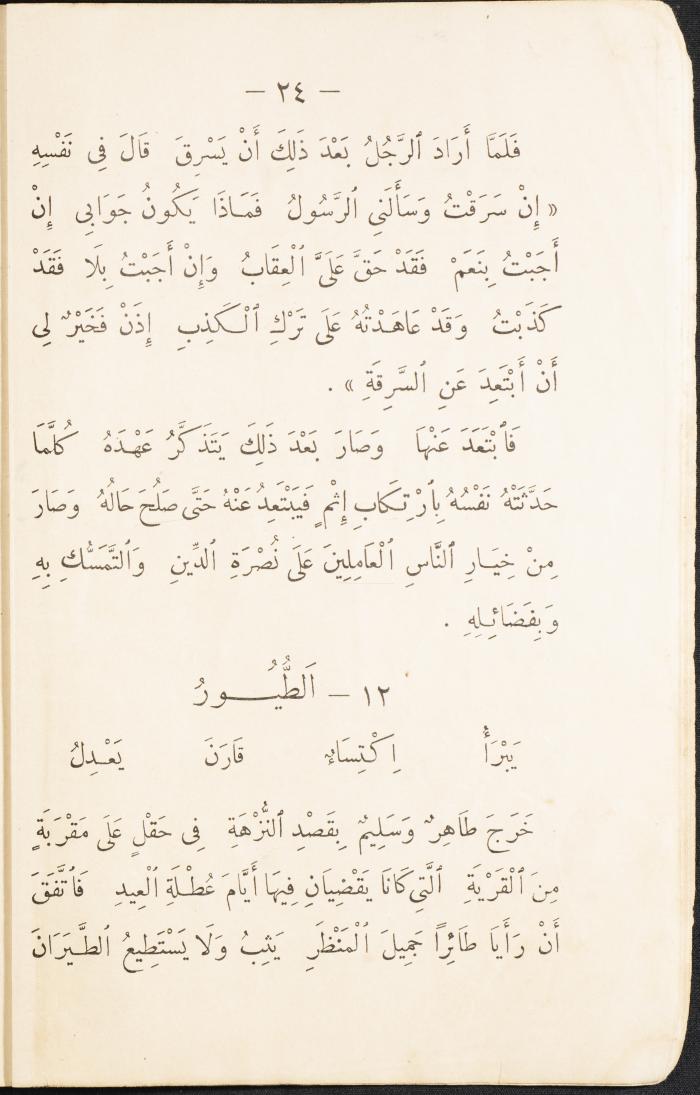 — ٢٤ —
فَلَمَّا أَرَادَ ٱلرَّجُلُ بَعْدَ ذَلِكَ أَنْ يَسْرِقَ قَالَ فِى نَفْسِهِ
« إِنْ سَرَقْتُ وَسَأَلَنِى ٱلرَّسُولُ فَمَاذَا يَكُونُ جَوَابِى إِنْ
أَجَبْتُ بِنَعَمْ فَقَدْ حَقَّ عَلَىَّ ٱلْعِقَابُ وَإِنْ أَجَبْتُ بِلَا فَقَدْ
كَذَبْتُ وَقَدْ عَاهَدْتُهُ عَلَى تَرْكِ ٱلْكَذِبِ إِذَنْ فَخَيْرٌ لِى
أَنْ أَبْتَعِدَ عَنِ ٱلسَّرِقَةِ » .
فَٱبْتَعَدَ عَنْهَا وَصَارَ بَعْدَ ذَلِكَ يَتَذَكَّرُ عَهْدَهُ كُلَّمَا
حَدَّثَتْهُ نَفْسُهُ بِٱرْتِكَابِ إِثْمٍ فَيَبْتَعِدُ عَنْهُ حَتَّى صَلُحَ حَالُهُ وَصَارَ
مِنْ خِيَارِ ٱلنَّاسِ ٱلْعَامِلِينَ عَلَى نُصْرَةِ ٱلدِّينِ وَٱلتَّمَسُّكِ بِهِ
وَبِفَضَائِلِهِ .
١٢ — اَلطُّيُورُ
يَبْرَأُ اِكْتِسَاءٌ قَارَنَ يَعْدِلُ
خَرَجَ طَاهِرٌ وَسَلِيمٌ بِقَصْدِ ٱلنُّزْهَةِ فِى حَقْلٍ عَلَى مَقْرَبَةٍ
مِنَ ٱلْقَرْيَةِ ٱلَّتِى كَانَا يَقْضِيَانِ فِيهَا أَيَّامَ عُطْلَةِ ٱلْعِيدِ فَٱتَّفَقَ
أَنْ رَأَيَا طَائِرًا جَمِيلَ ٱلْمَنْظَرِ يَثِبُ وَلَا يَسْتَطِيعُ ٱلطَّيَرَانَ